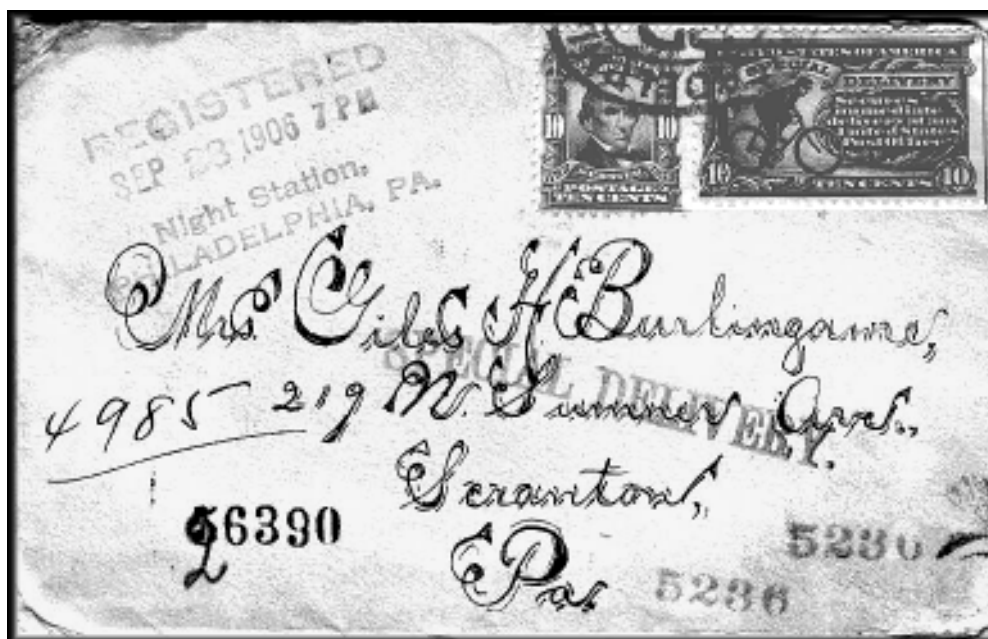 REGISTERED
SEP 23, 1906 7 PM
Night Station,
PHILADELPHIA, PA.
10 10
POSTAGE
TEN CENTS
UNITED STATES OF AMERICA
SPECIAL DELIVERY
Secures
immediate
delivery at any
United States
Post Office
10 TEN CENTS 10
Mrs Giles H Burlingame,
SPECIAL DELIVERY.
4985 219 N. Sumner Ave.,
Scranton,
Pa.
56390
2
5236
5236